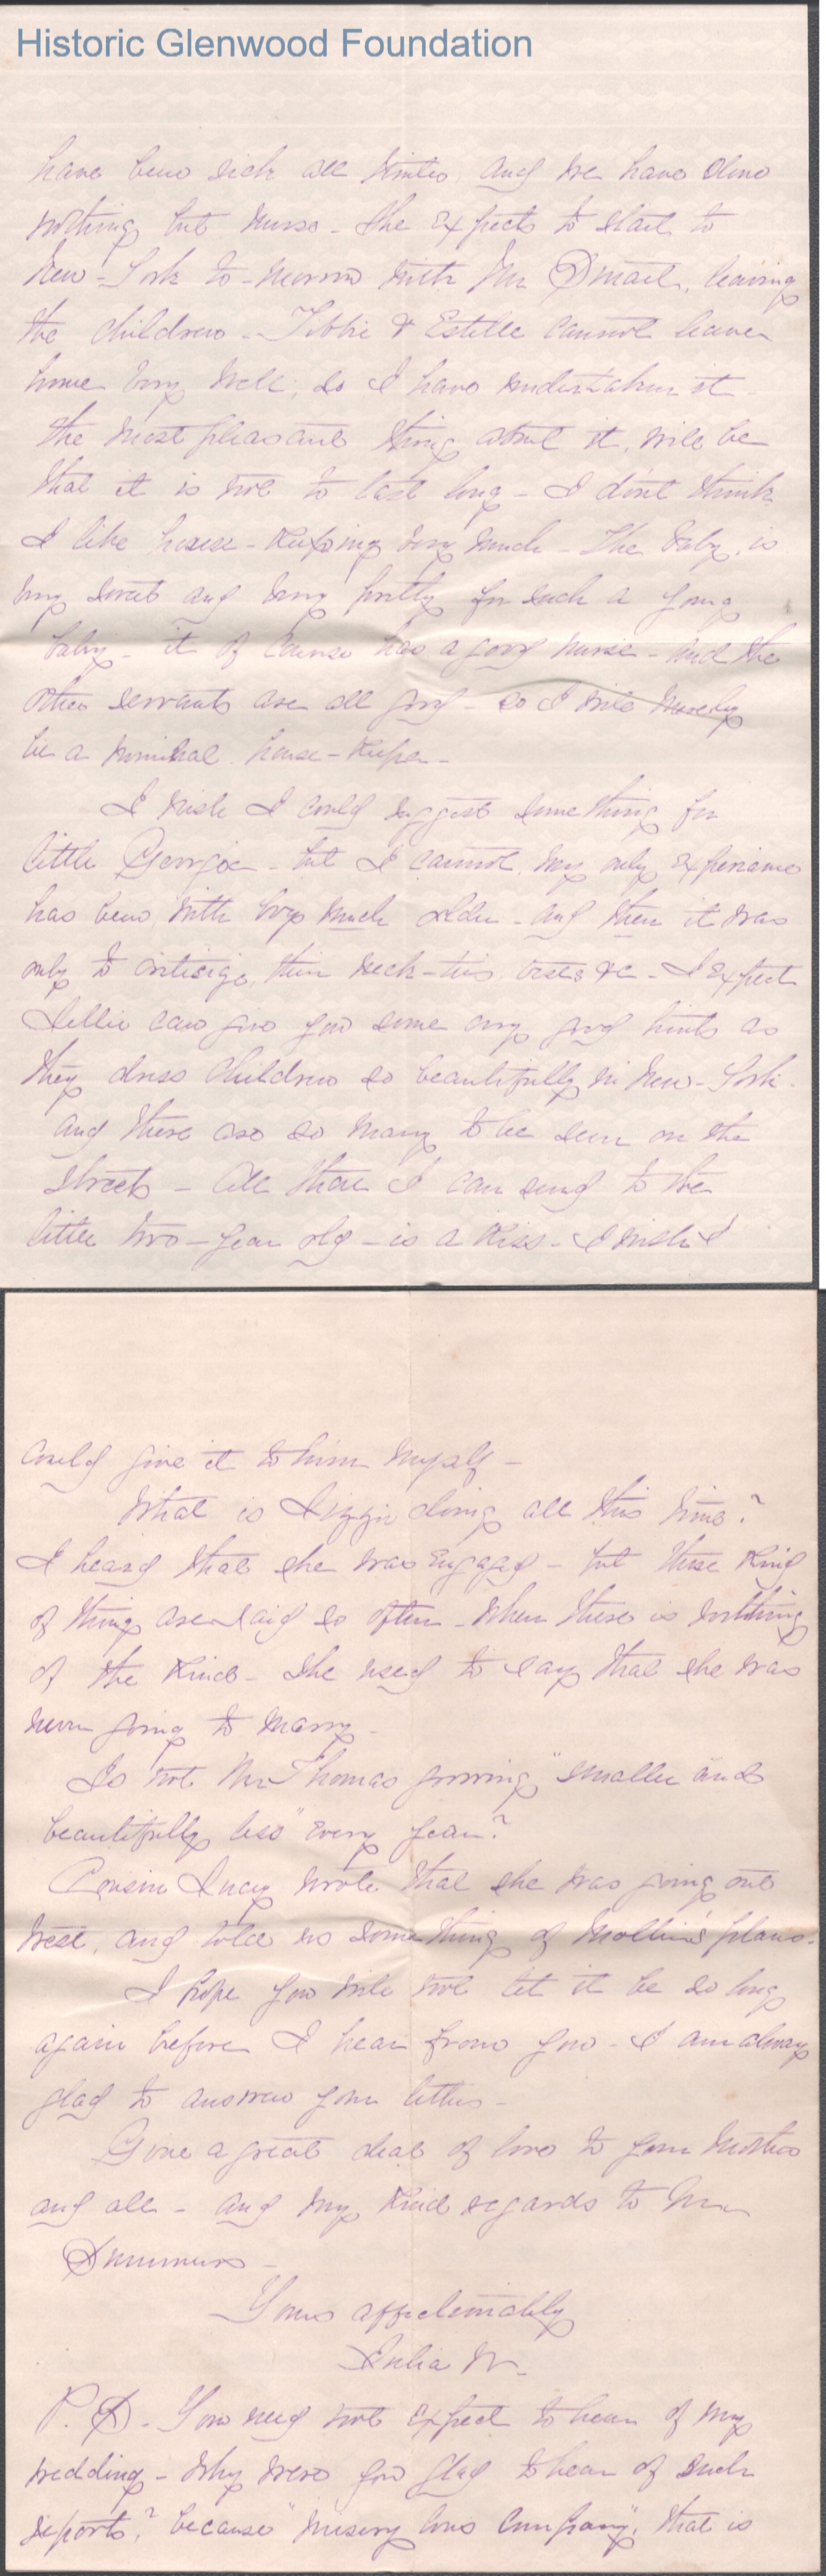 Historic Glenwood Foundation
have been sick all winter and we have done
nothing but nurse - she expects to start to
New-York to-morrow with Mr Small, leaving
the children - Tibbie & Estelle cannot leave
home very well, so I have undertaken it -
the most pleasant thing about it, will be
that it is not to last long - I don't think
I like house-keeping very much - The baby, is
very sweet and very pretty for such a young
baby - it of course has a good nurse - and the
other servants are all good - so I will merely
be a nominal house-keeper -
I wish I could suggest something for
little Georgie - but I cannot, my only experience
has been with boys much older - and then it was
only to criticize, their neck-ties, vests &c - I expect
Lellie can give you some very good hints as
they dress children so beautifully in New-York -
and there are so many to be seen on the
streets - All that I can send to the
little two-year old - is a kiss - I wish I
could give it to him myself -
What is Lizzie doing all this time?
I heard that she was engaged - but these kind
of things are said so often - when there is nothing
of the kind - She used to say that she was
never going to marry -
Is not Mr Thomas growing "smaller and
beautifully less" every year?
Cousin Lucy wrote that she was going out
West, and told us something of Mollie's plans.
I hope you will not let it be so long
again before I hear from you - I am always
glad to answer your letters -
Give a great deal of love to your Mother
and all - and my kind regards to Mr
Summers -
Yours affectionately
Julia W.
P.S. - You need not expect to hear of my
wedding - Why were you glad to hear of such
reports? because "misery loves company", that is